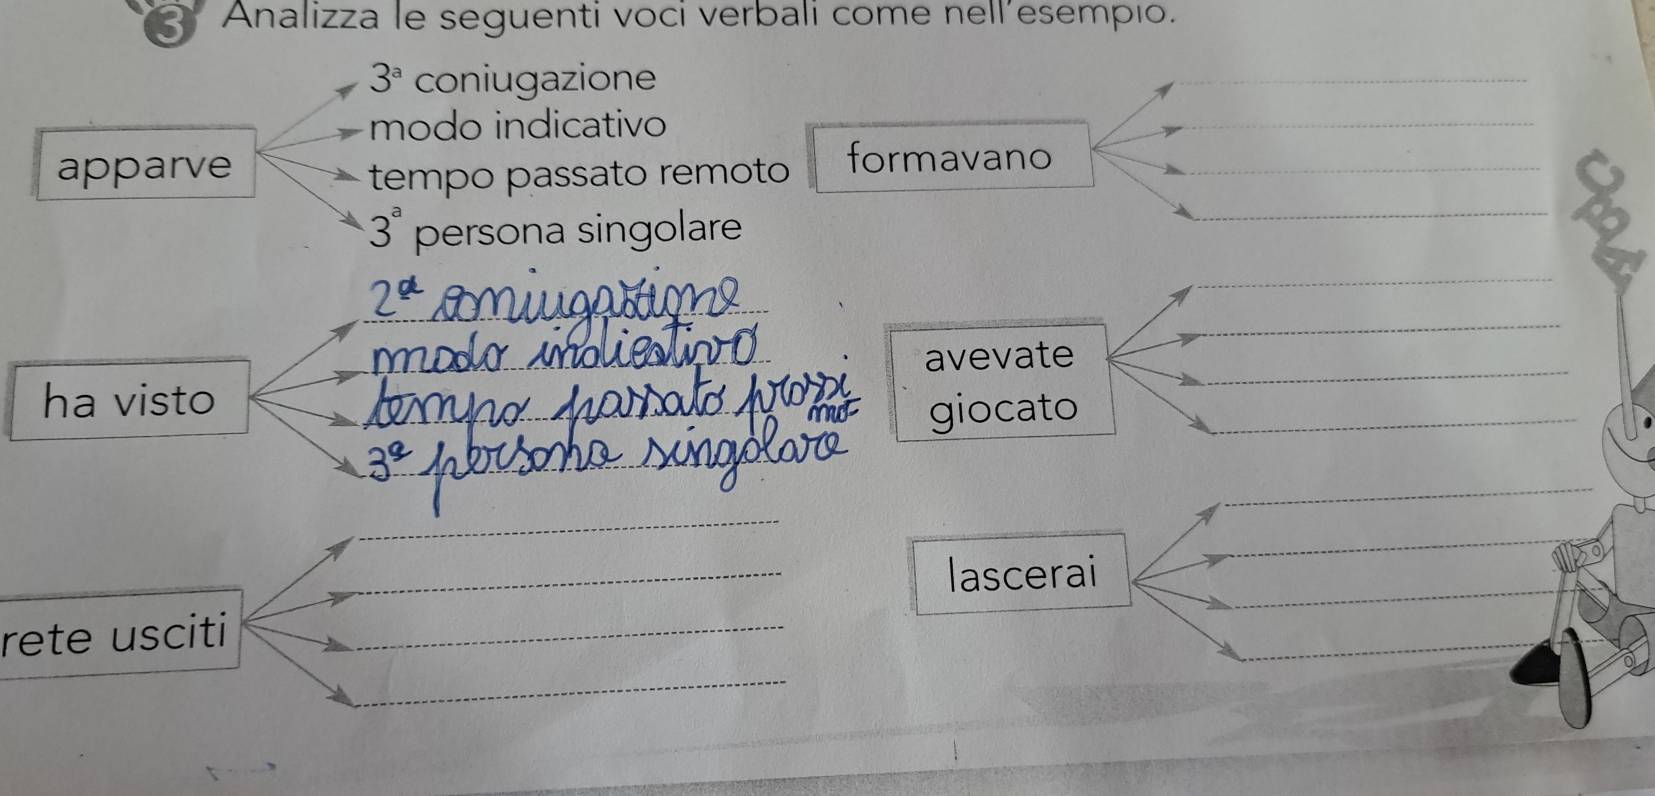 3 Analizza le seguenti voci verbali come nell'esempio.
apparve
3ª coniugazione
modo indicativo
tempo passato remoto
3ª persona singolare
formavano
ha visto
2ª coniugazione
modo indicativo
tempo passato prossi
mo
3ª persona singolare
avevate
giocato
rete usciti
lascerai